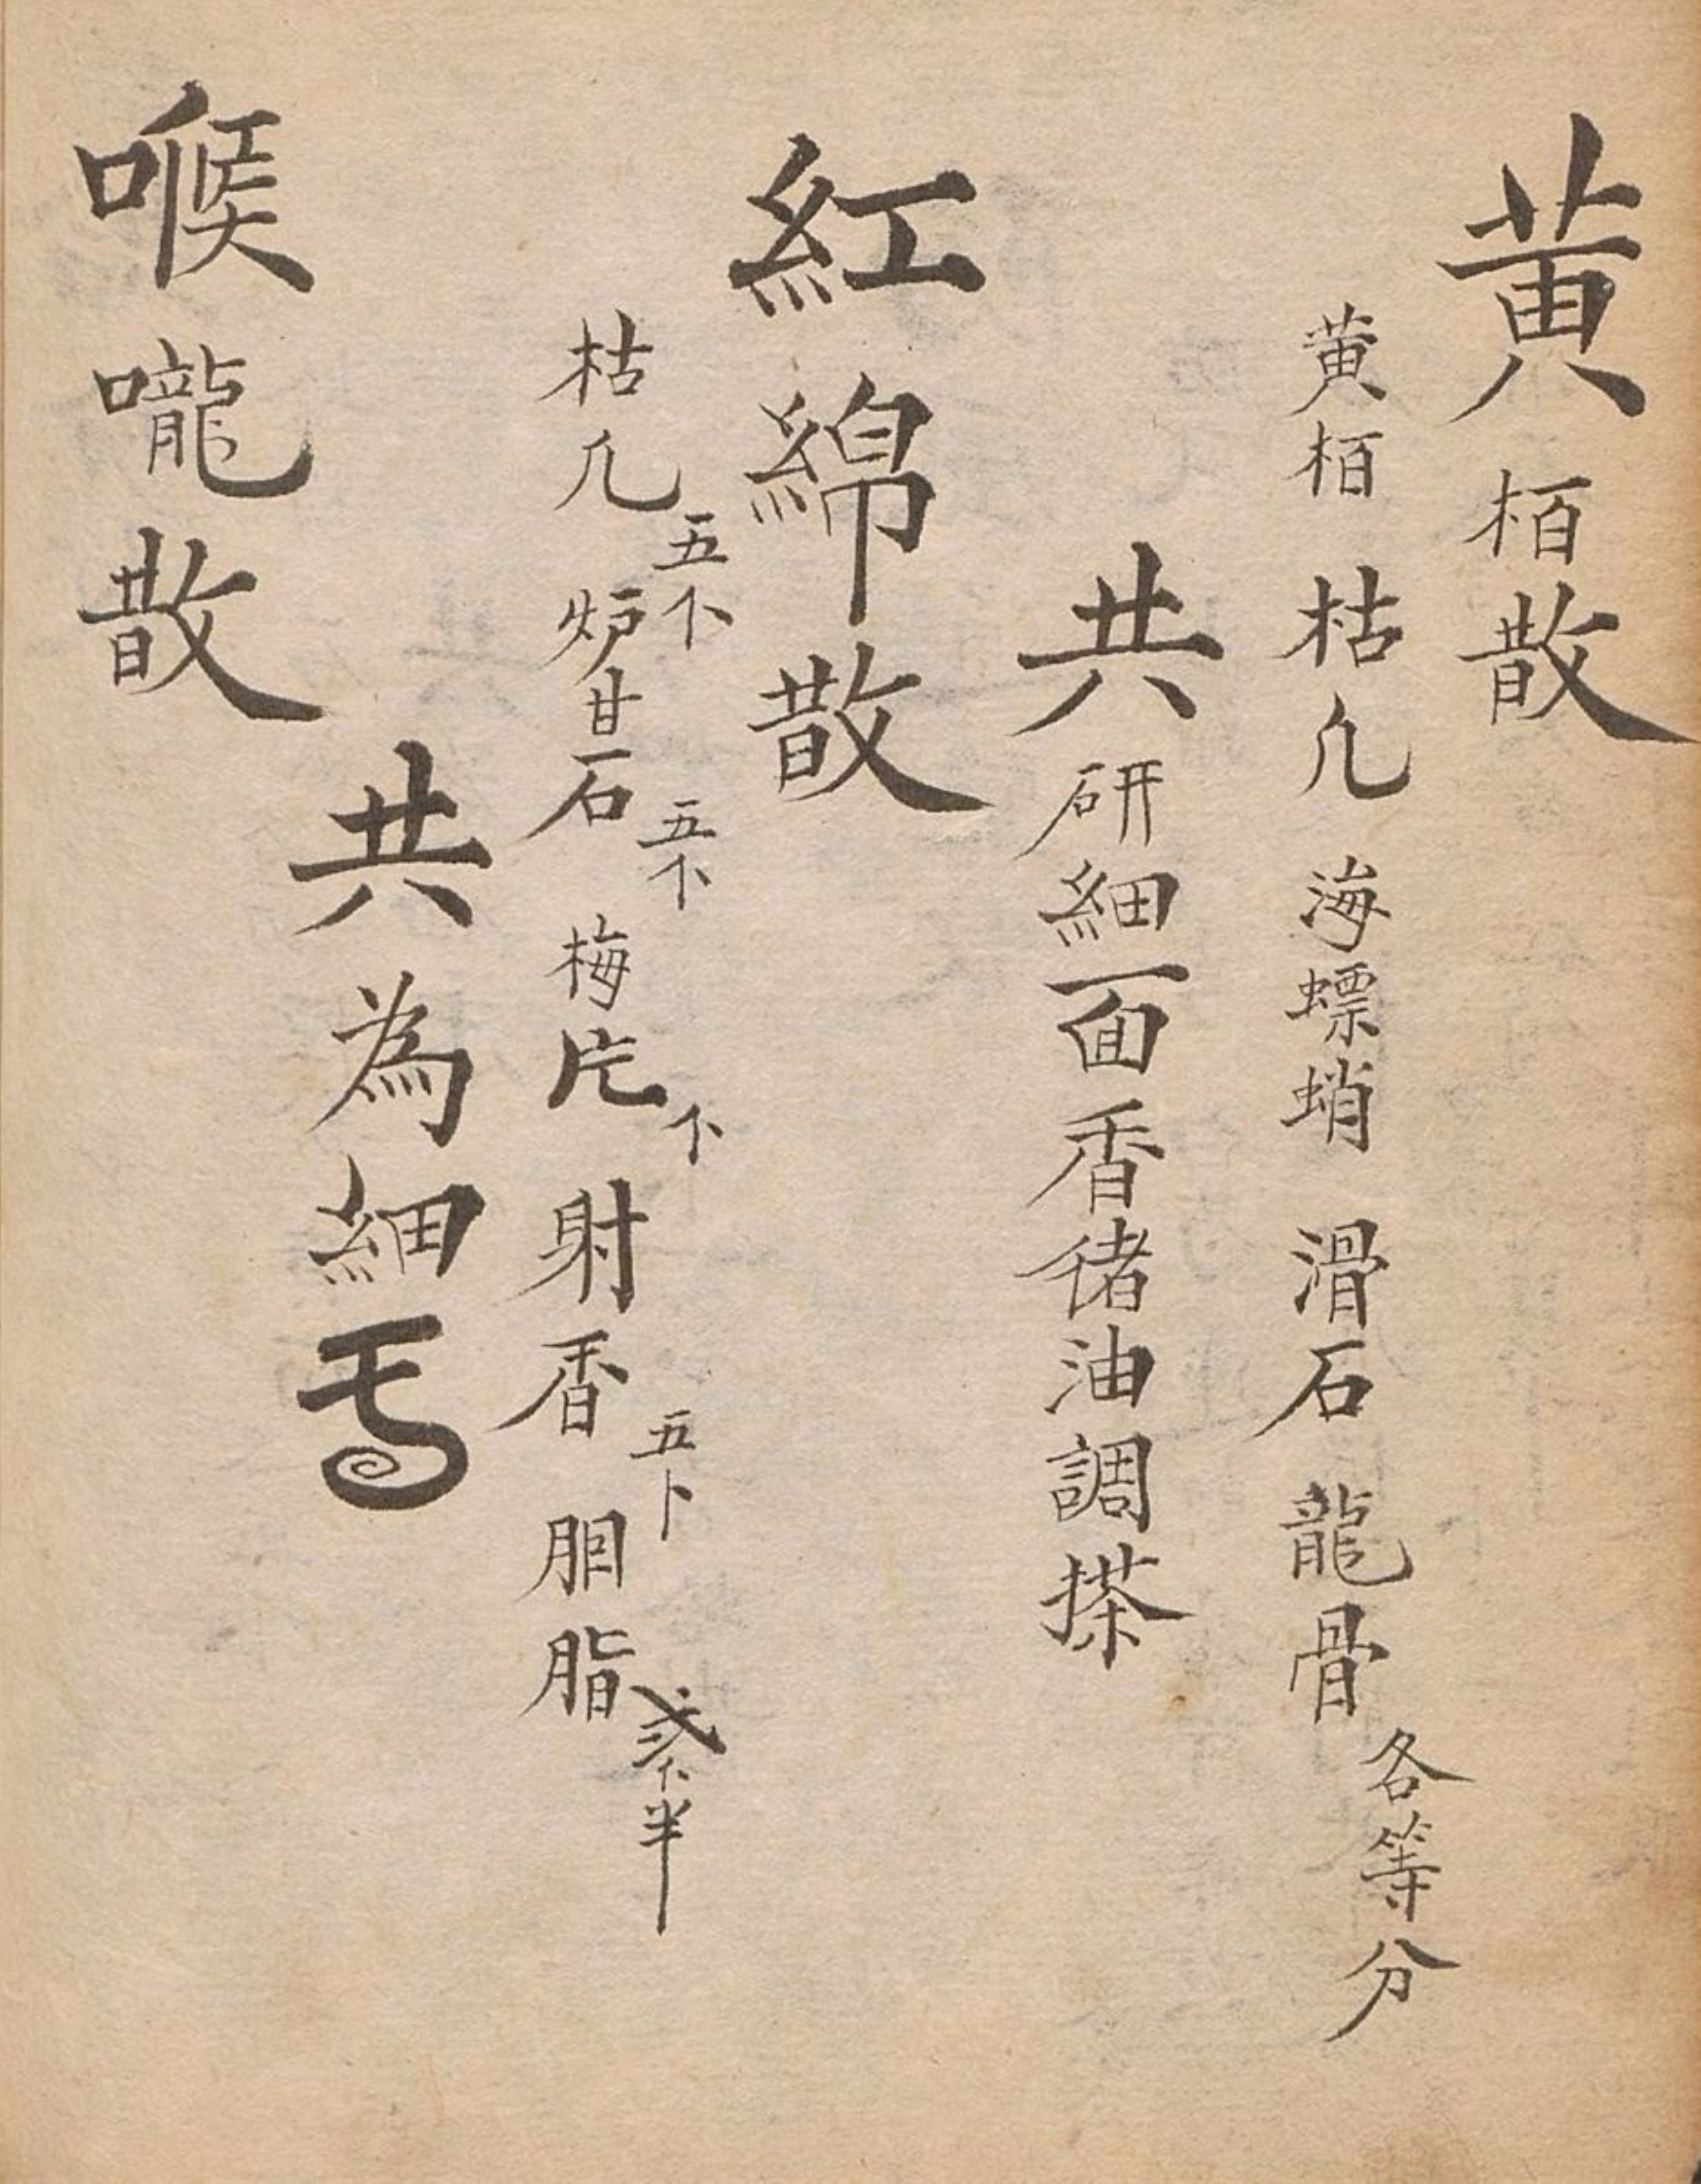 黄栢散
黄栢 枯凢 海螵蛸 滑石 龍骨 各等分
共研細面香油調搽
紅綿散
枯凢 五 炉甘石 五 梅片 射香 五卜 胭脂 半
共為細
喉嚨散